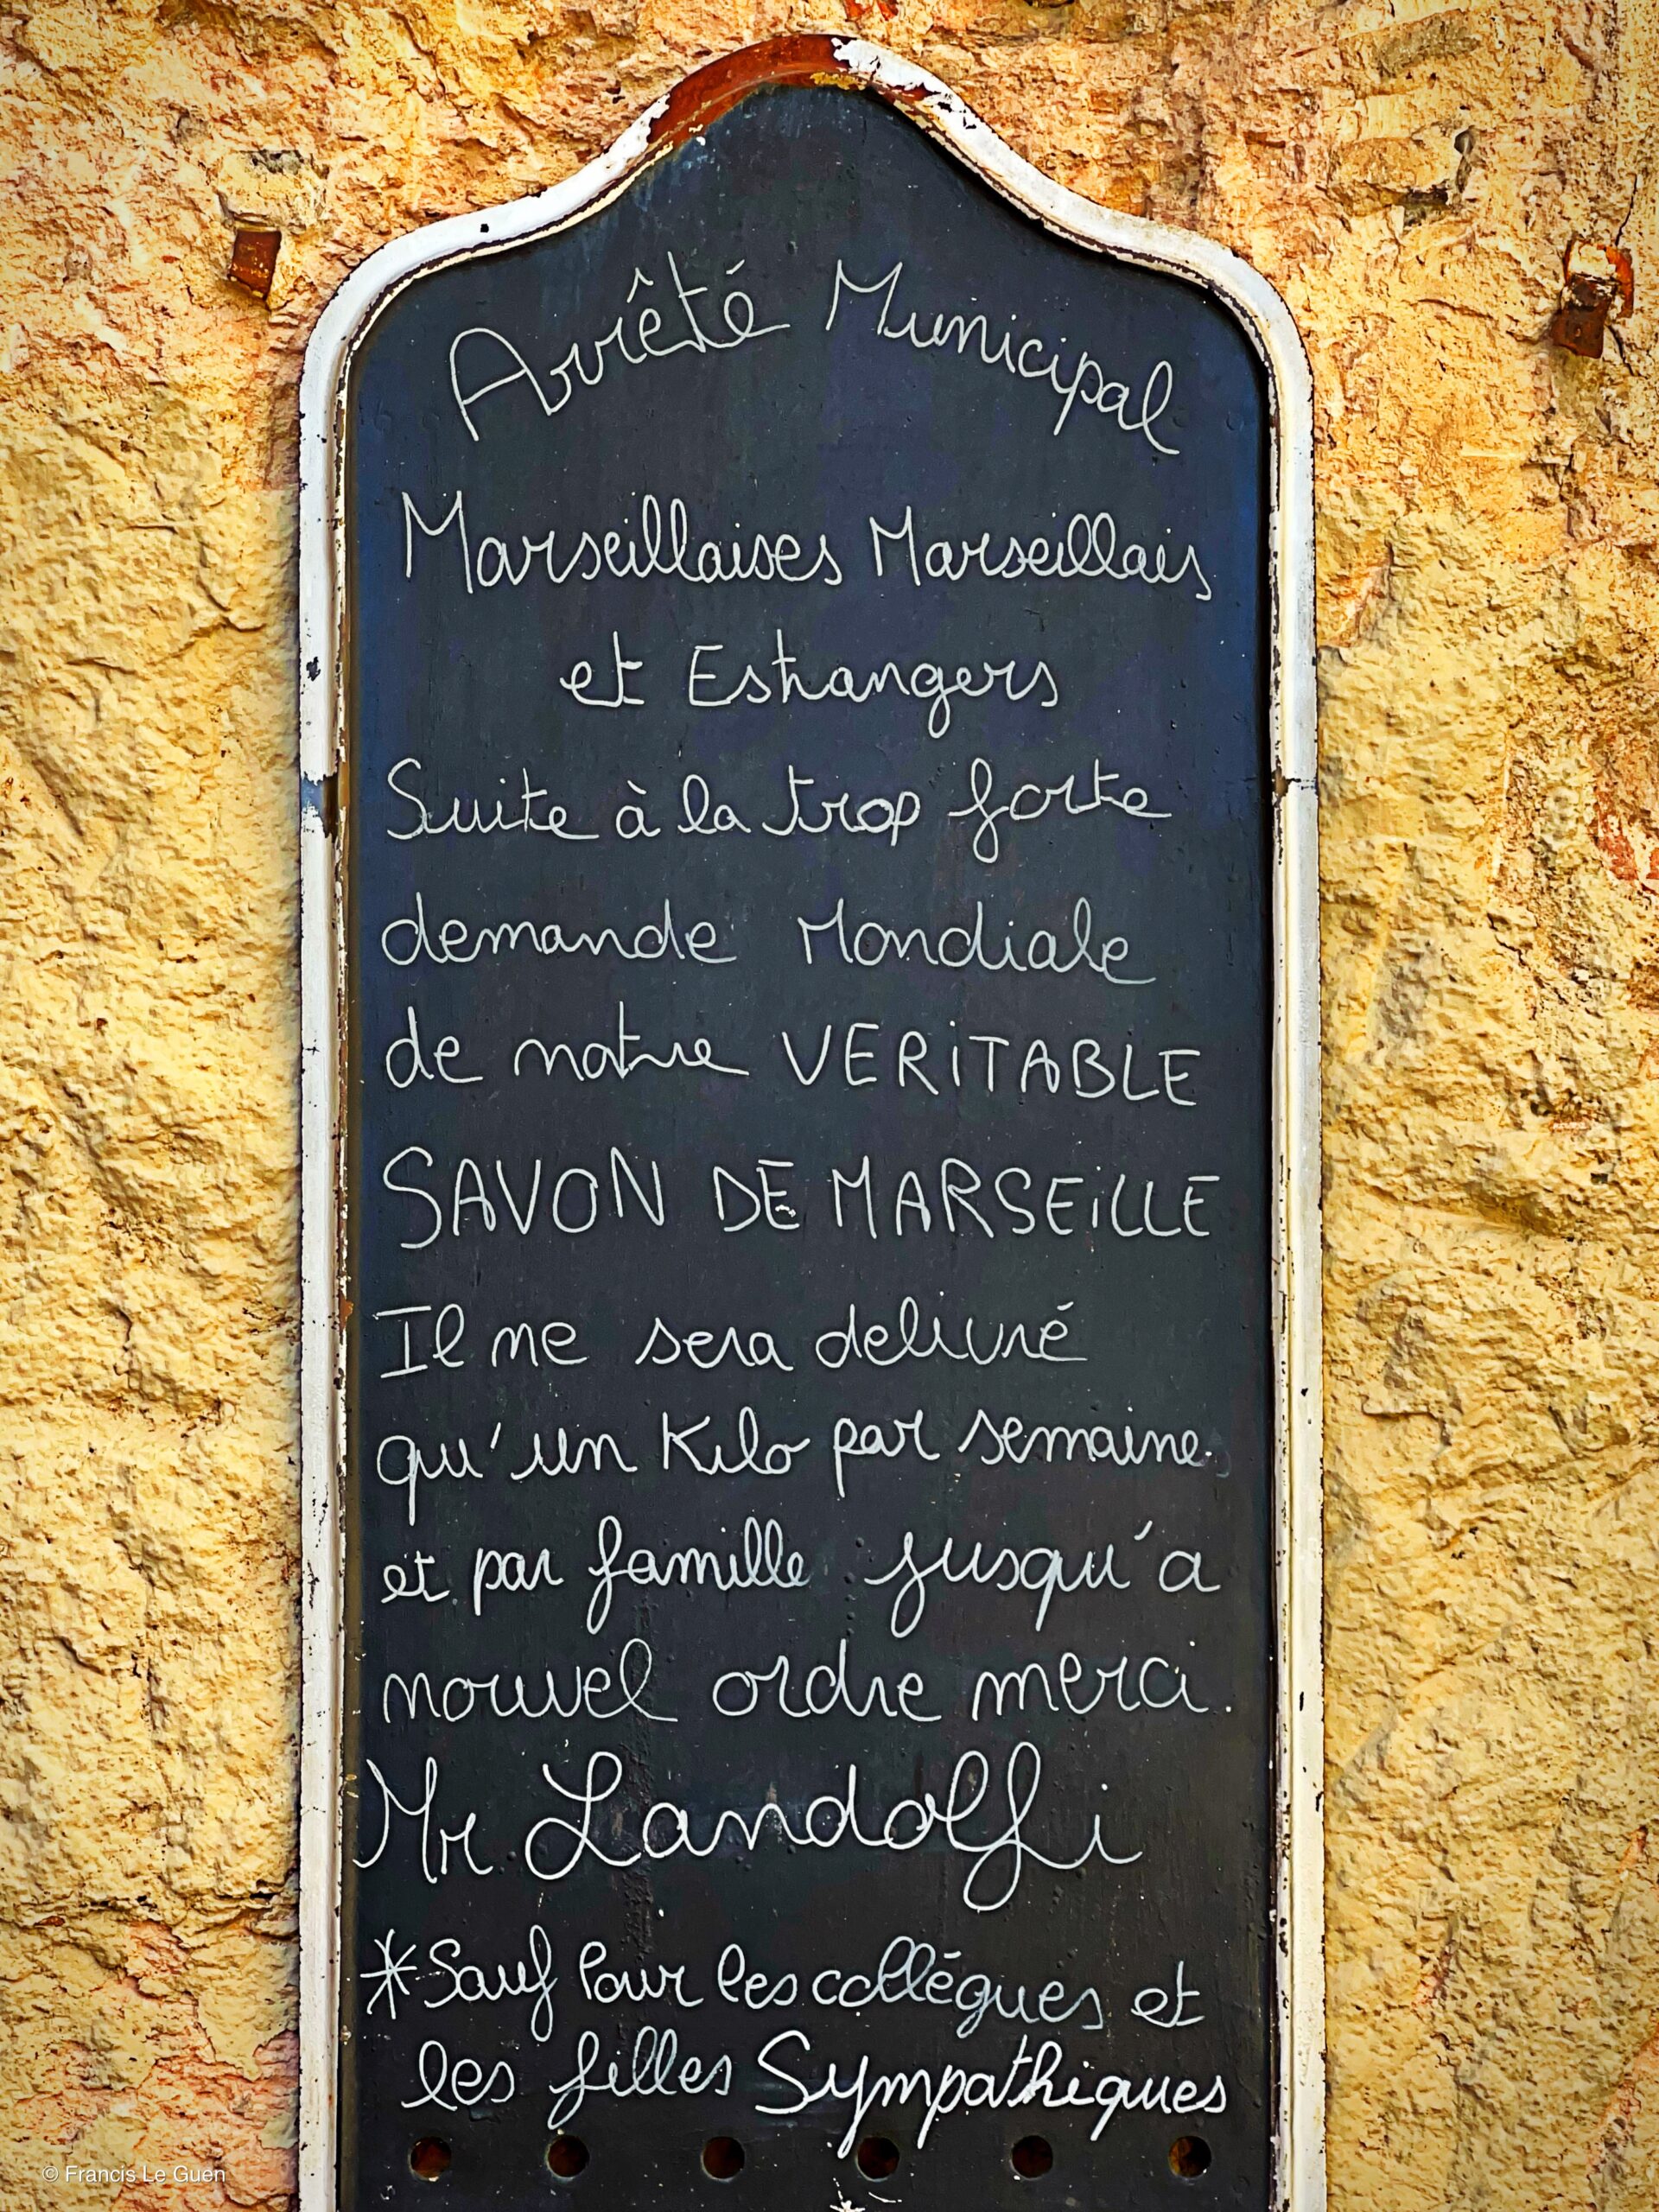 Arrêté Municipal
Marseillaises Marseillais
et Estrangers
Suite à la trop forte
demande Mondiale
de notre VERiTABLE
SAVON DE MARSEiLLE
Il ne sera delivré
qu'un Kilo par semaine
et par famille jusqu'a
nouvel ordre merci.
Mr Landolfi
*Sauf Pour les collégues et
les filles Sympathiques
© Francis Le Guen